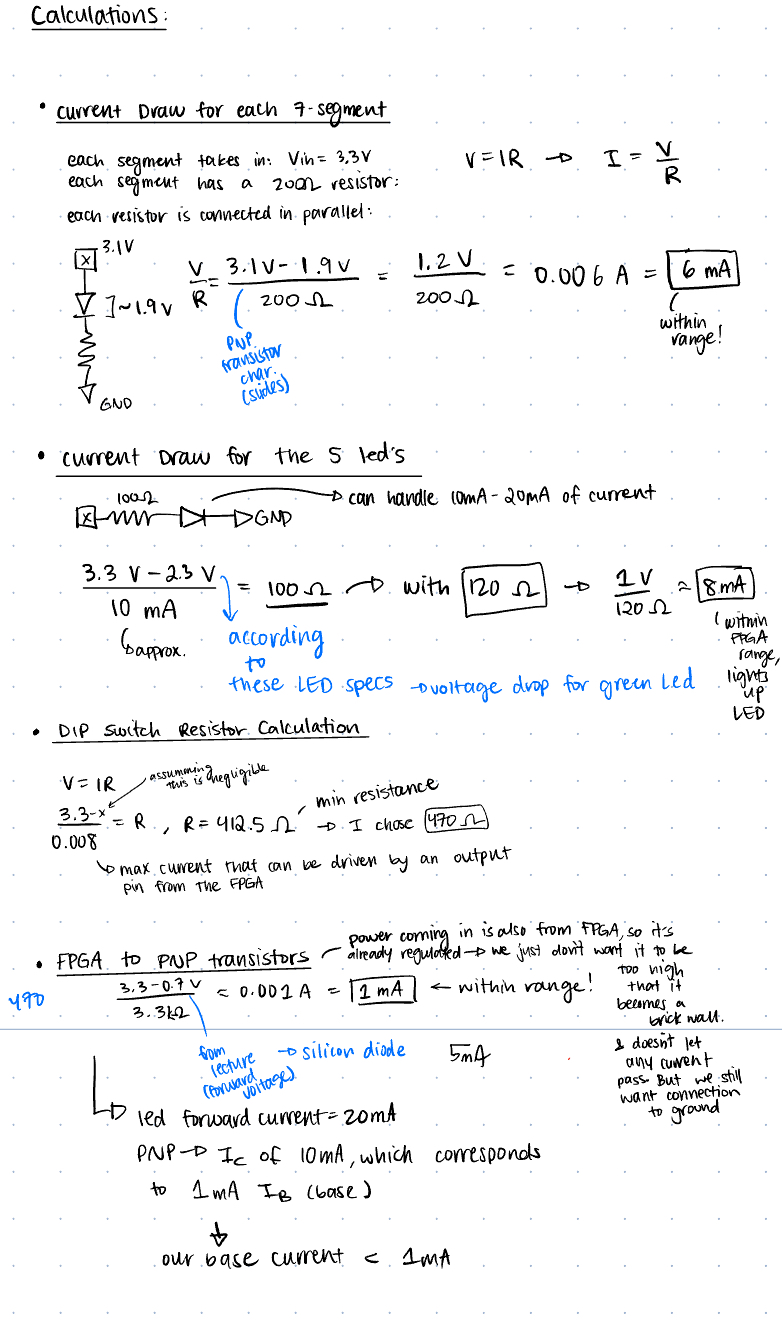 Calculations:
• Current Draw for each 7-segment
each segment takes in: Vin = 3.3V
each segment has a 200Ω resistor:
each resistor is connected in parallel:
V = IR → I = V/R
3.1V
]~1.9V
GND
V/R = 3.1V - 1.9V / 200Ω = 1.2V / 200Ω = 0.006 A = 6 mA
PNP
transistor
char.
(slides)
within
range!
• Current Draw for the 5 led's
100Ω
GND
→ can handle 10mA - 20mA of current
3.3 V - 2.3 V / 10 mA = 100Ω → with 120 Ω → 1V / 120Ω ≈ 8mA
approx.
according
to
these LED specs → voltage drop for green led
within
FPGA
range,
lights
up
LED
• DIP Switch Resistor Calculation
V = IR
assumming
this is negligible
3.3-x / 0.008 = R , R = 412.5 Ω → I chose 470 Ω
min resistance
max current that can be driven by an output
pin from the FPGA
• FPGA to PNP transistors
power coming in is also from FPGA, so it's
already regulated → we just don't want it to be
too high
that it
becomes a
brick wall.
& doesn't let
any current
pass. But we still
want connection
to ground
470
3.3-0.7 V / 3.3kΩ < 0.001 A = 1 mA ← within range!
from
lecture
(forward
voltage)
→ silicon diode
5mA
led forward current = 20mA
PNP → IC of 10mA, which corresponds
to 1mA IB (base)
our base current < 1mA